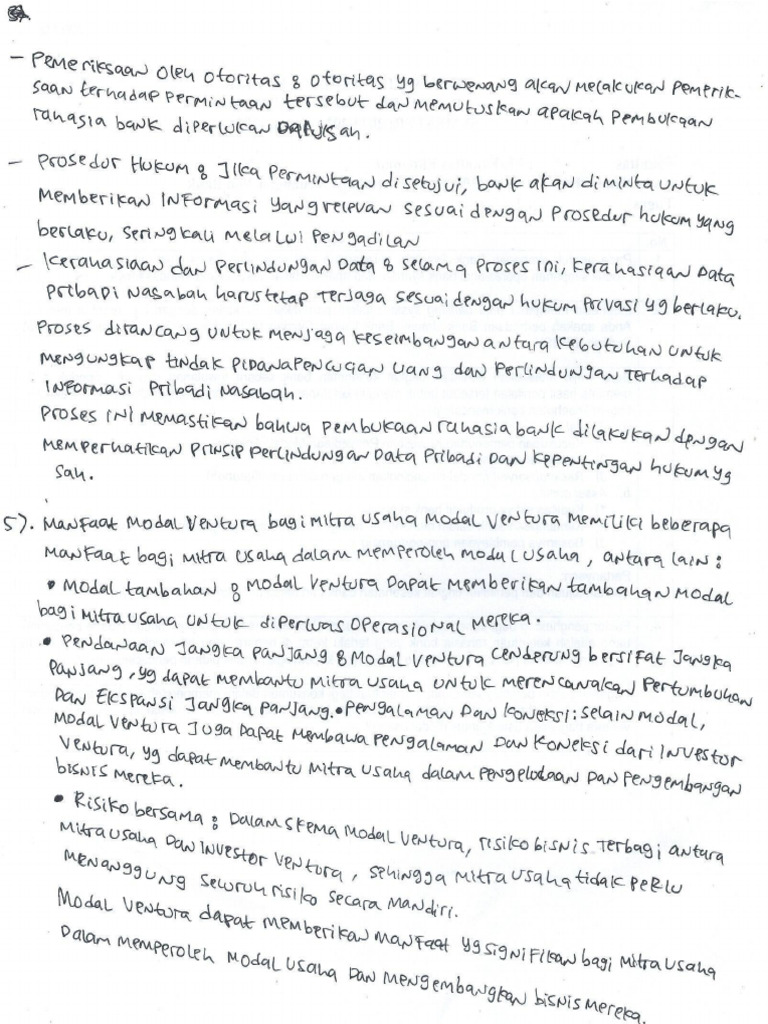 - Pemeriksaan oleh otoritas : otoritas yg berwenang akan melakukan pemerik-
saan terhadap permintaan tersebut dan memutuskan apakah pembukaan
rahasia bank diperlukan sah.
- Prosedur Hukum : Jika permintaan disetujui, bank akan diminta untuk
memberikan informasi yang relevan sesuai dengan prosedur hukum yang
berlaku, seringkali melalui pengadilan
- Kerahasiaan dan Perlindungan Data : selama proses ini, kerahasiaan data
pribadi nasabah harus tetap terjaga sesuai dengan hukum privasi yg berlaku.
Proses dirancang untuk menjaga keseimbangan antara kebutuhan untuk
mengungkap tindak pidana pencucian uang dan perlindungan terhadap
informasi pribadi nasabah.
Proses ini memastikan bahwa pembukaan rahasia bank dilakukan dengan
memperhatikan prinsip perlindungan data pribadi dan kepentingan hukum yg
sah.
5). Manfaat modal ventura bagi mitra usaha modal ventura memiliki beberapa
manfaat bagi mitra usaha dalam memperoleh modal usaha, antara lain :
• Modal tambahan : modal ventura dapat memberikan tambahan modal
bagi mitra usaha untuk diperluas operasional mereka.
• Pendanaan jangka panjang : modal ventura cenderung bersifat jangka
panjang, yg dapat membantu mitra usaha untuk merencanakan pertumbuhan
dan ekspansi jangka panjang. • Pengalaman dan koneksi : selain modal,
modal ventura juga dapat membawa pengalaman dan koneksi dari investor
ventura, yg dapat membantu mitra usaha dalam pengelolaan dan pengembangan
bisnis mereka.
• Risiko bersama : Dalam skema modal ventura, risiko bisnis terbagi antara
mitra usaha dan investor ventura, sehingga mitra usaha tidak perlu
menanggung seluruh risiko secara mandiri.
Modal ventura dapat memberikan manfaat yg signifikan bagi mitra usaha
dalam memperoleh modal usaha dan mengembangkan bisnis mereka.